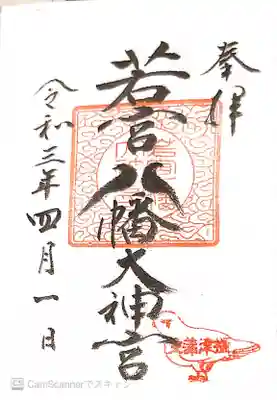 奉拝
若宮八幡大神宮
令和三年四月一日
CamScannerでスキャン